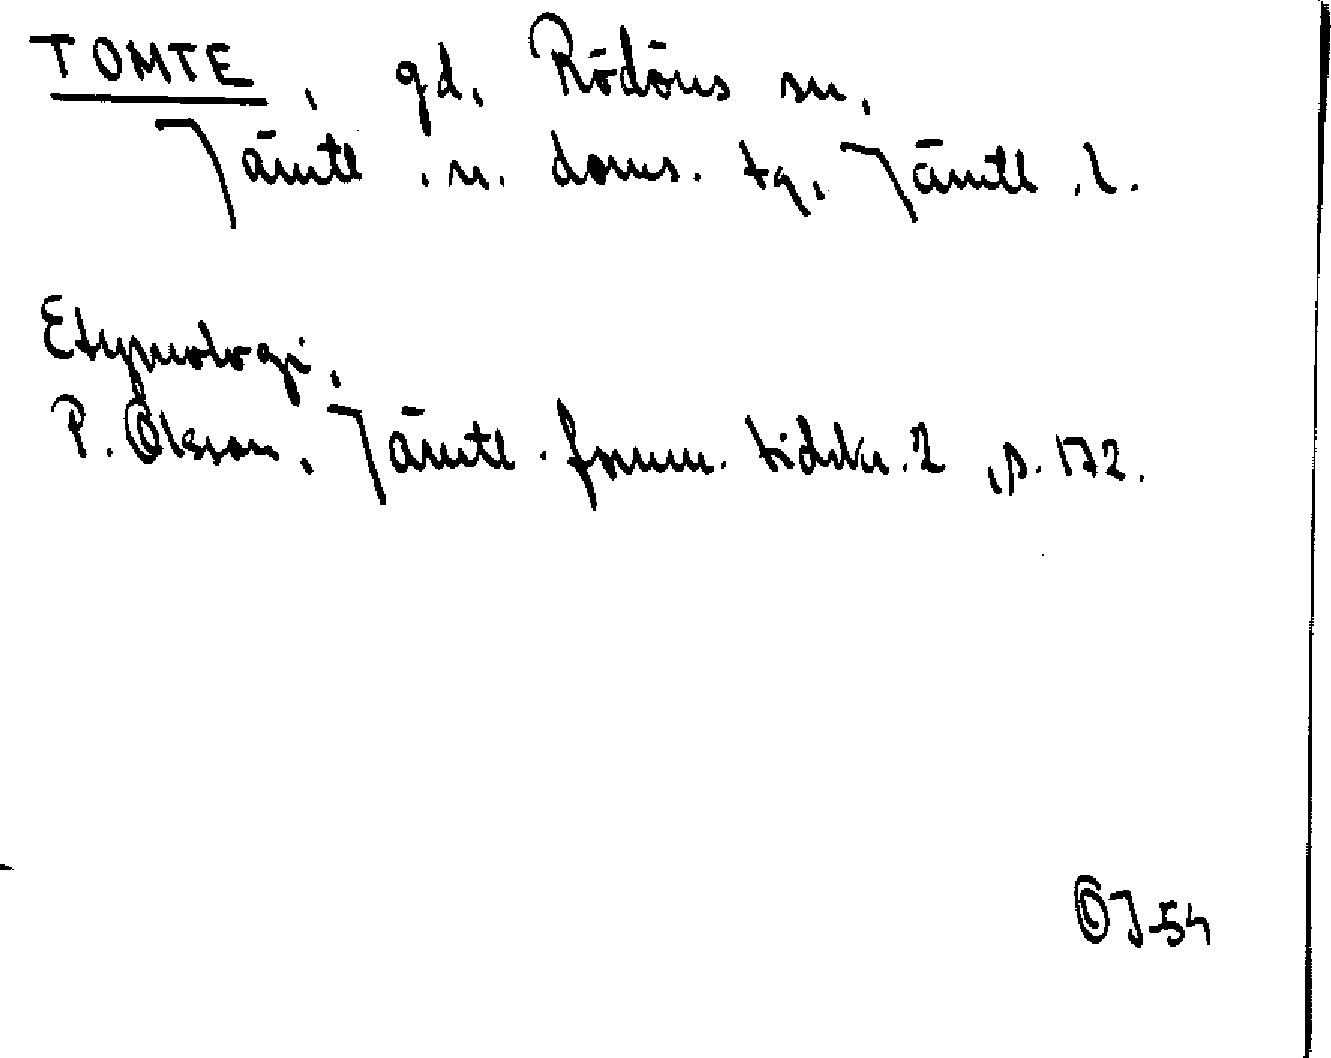 TOMTE, gd, Rödöns sn,
Jämtl. n. doms. tg, Jämtl. l.
Etymologi,
P. Olsson, Jämtl. fornm. tidskr. 2, s. 172.
OJ-54